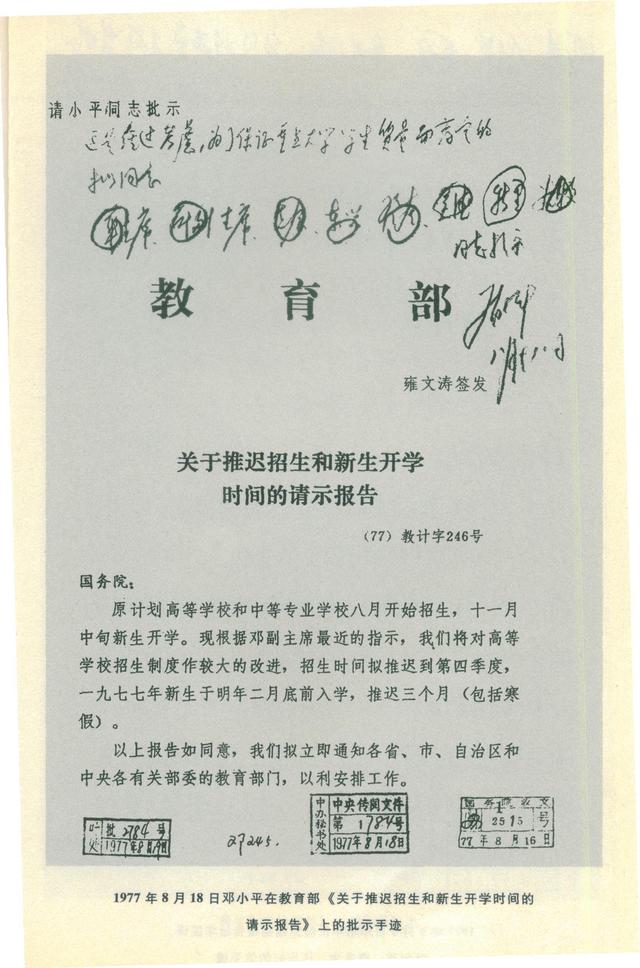 请小平同志批示
这是经过考虑，为了保证重点大学学生质量而商定的
拟同意
同志批示
教育部
八月十八日
雍文涛签发
关于推迟招生和新生开学
时间的请示报告
（77）教计字246号
国务院：
原计划高等学校和中等专业学校八月开始招生，十一月
中旬新生开学。现根据邓副主席最近的指示，我们将对高等
学校招生制度作较大的改进，招生时间拟推迟到第四季度，
一九七七年新生于明年二月底前入学，推迟三个月（包括寒
假）。
以上报告如同意，我们拟立即通知各省、市、自治区和
中央各有关部委的教育部门，以利安排工作。
批2784号
1977年8月19日
27245.
中办秘书处
中央传阅文件
第1784号
1977年8月18日
国务院收文
2515号
77年8月16日
1977年8月18日邓小平在教育部《关于推迟招生和新生开学时间的
请示报告》上的批示手迹